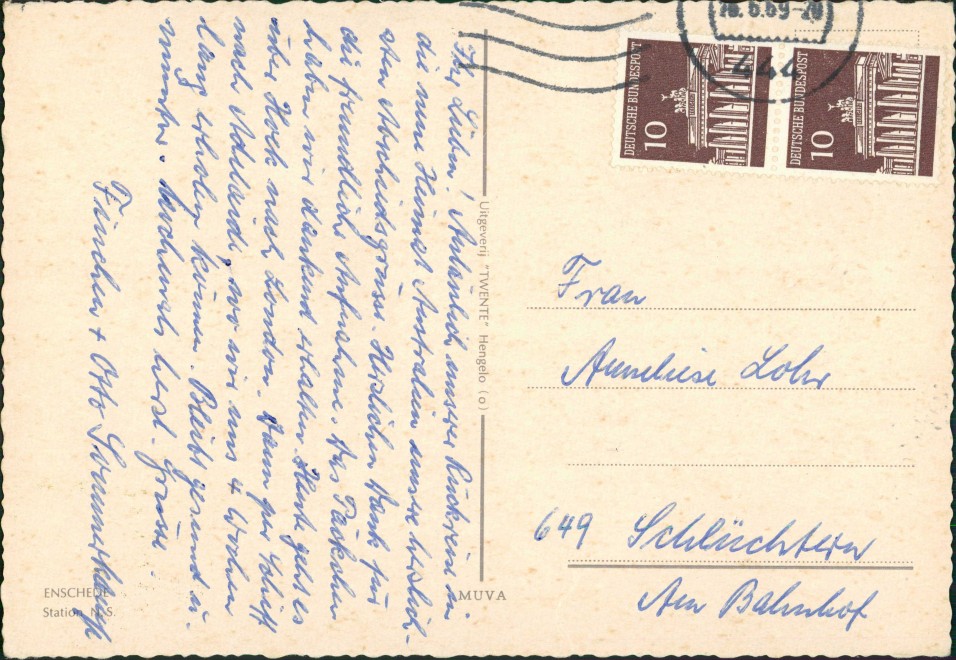 Ihr Lieben! Anläßlich unserer Rückreise in
die neue Heimat Australien unsere herzlich-
sten Abschiedsgrüsse. Herzlichen Dank für
die freundliche Aufnahme. Das Päckchen
haben wir dankend erhalten. Heute geht es
über Hoek nach London. Dann per Schiff
nach Adelaide, wo wir uns 4 Wochen
lang erholen können. Bleibt gesund u.
munter. Nochmals herzl. Grüsse.
Finchen + Otto
ENSCHEDE
Station N. S.
Uitgeverij "TWENTE" Hengelo (o)
MUVA
6.69-20
444
DEUTSCHE BUNDESPOST
10
DEUTSCHE BUNDESPOST
10
Frau
Anneliese Lohr
649 Schlüchtern
Am Bahnhof